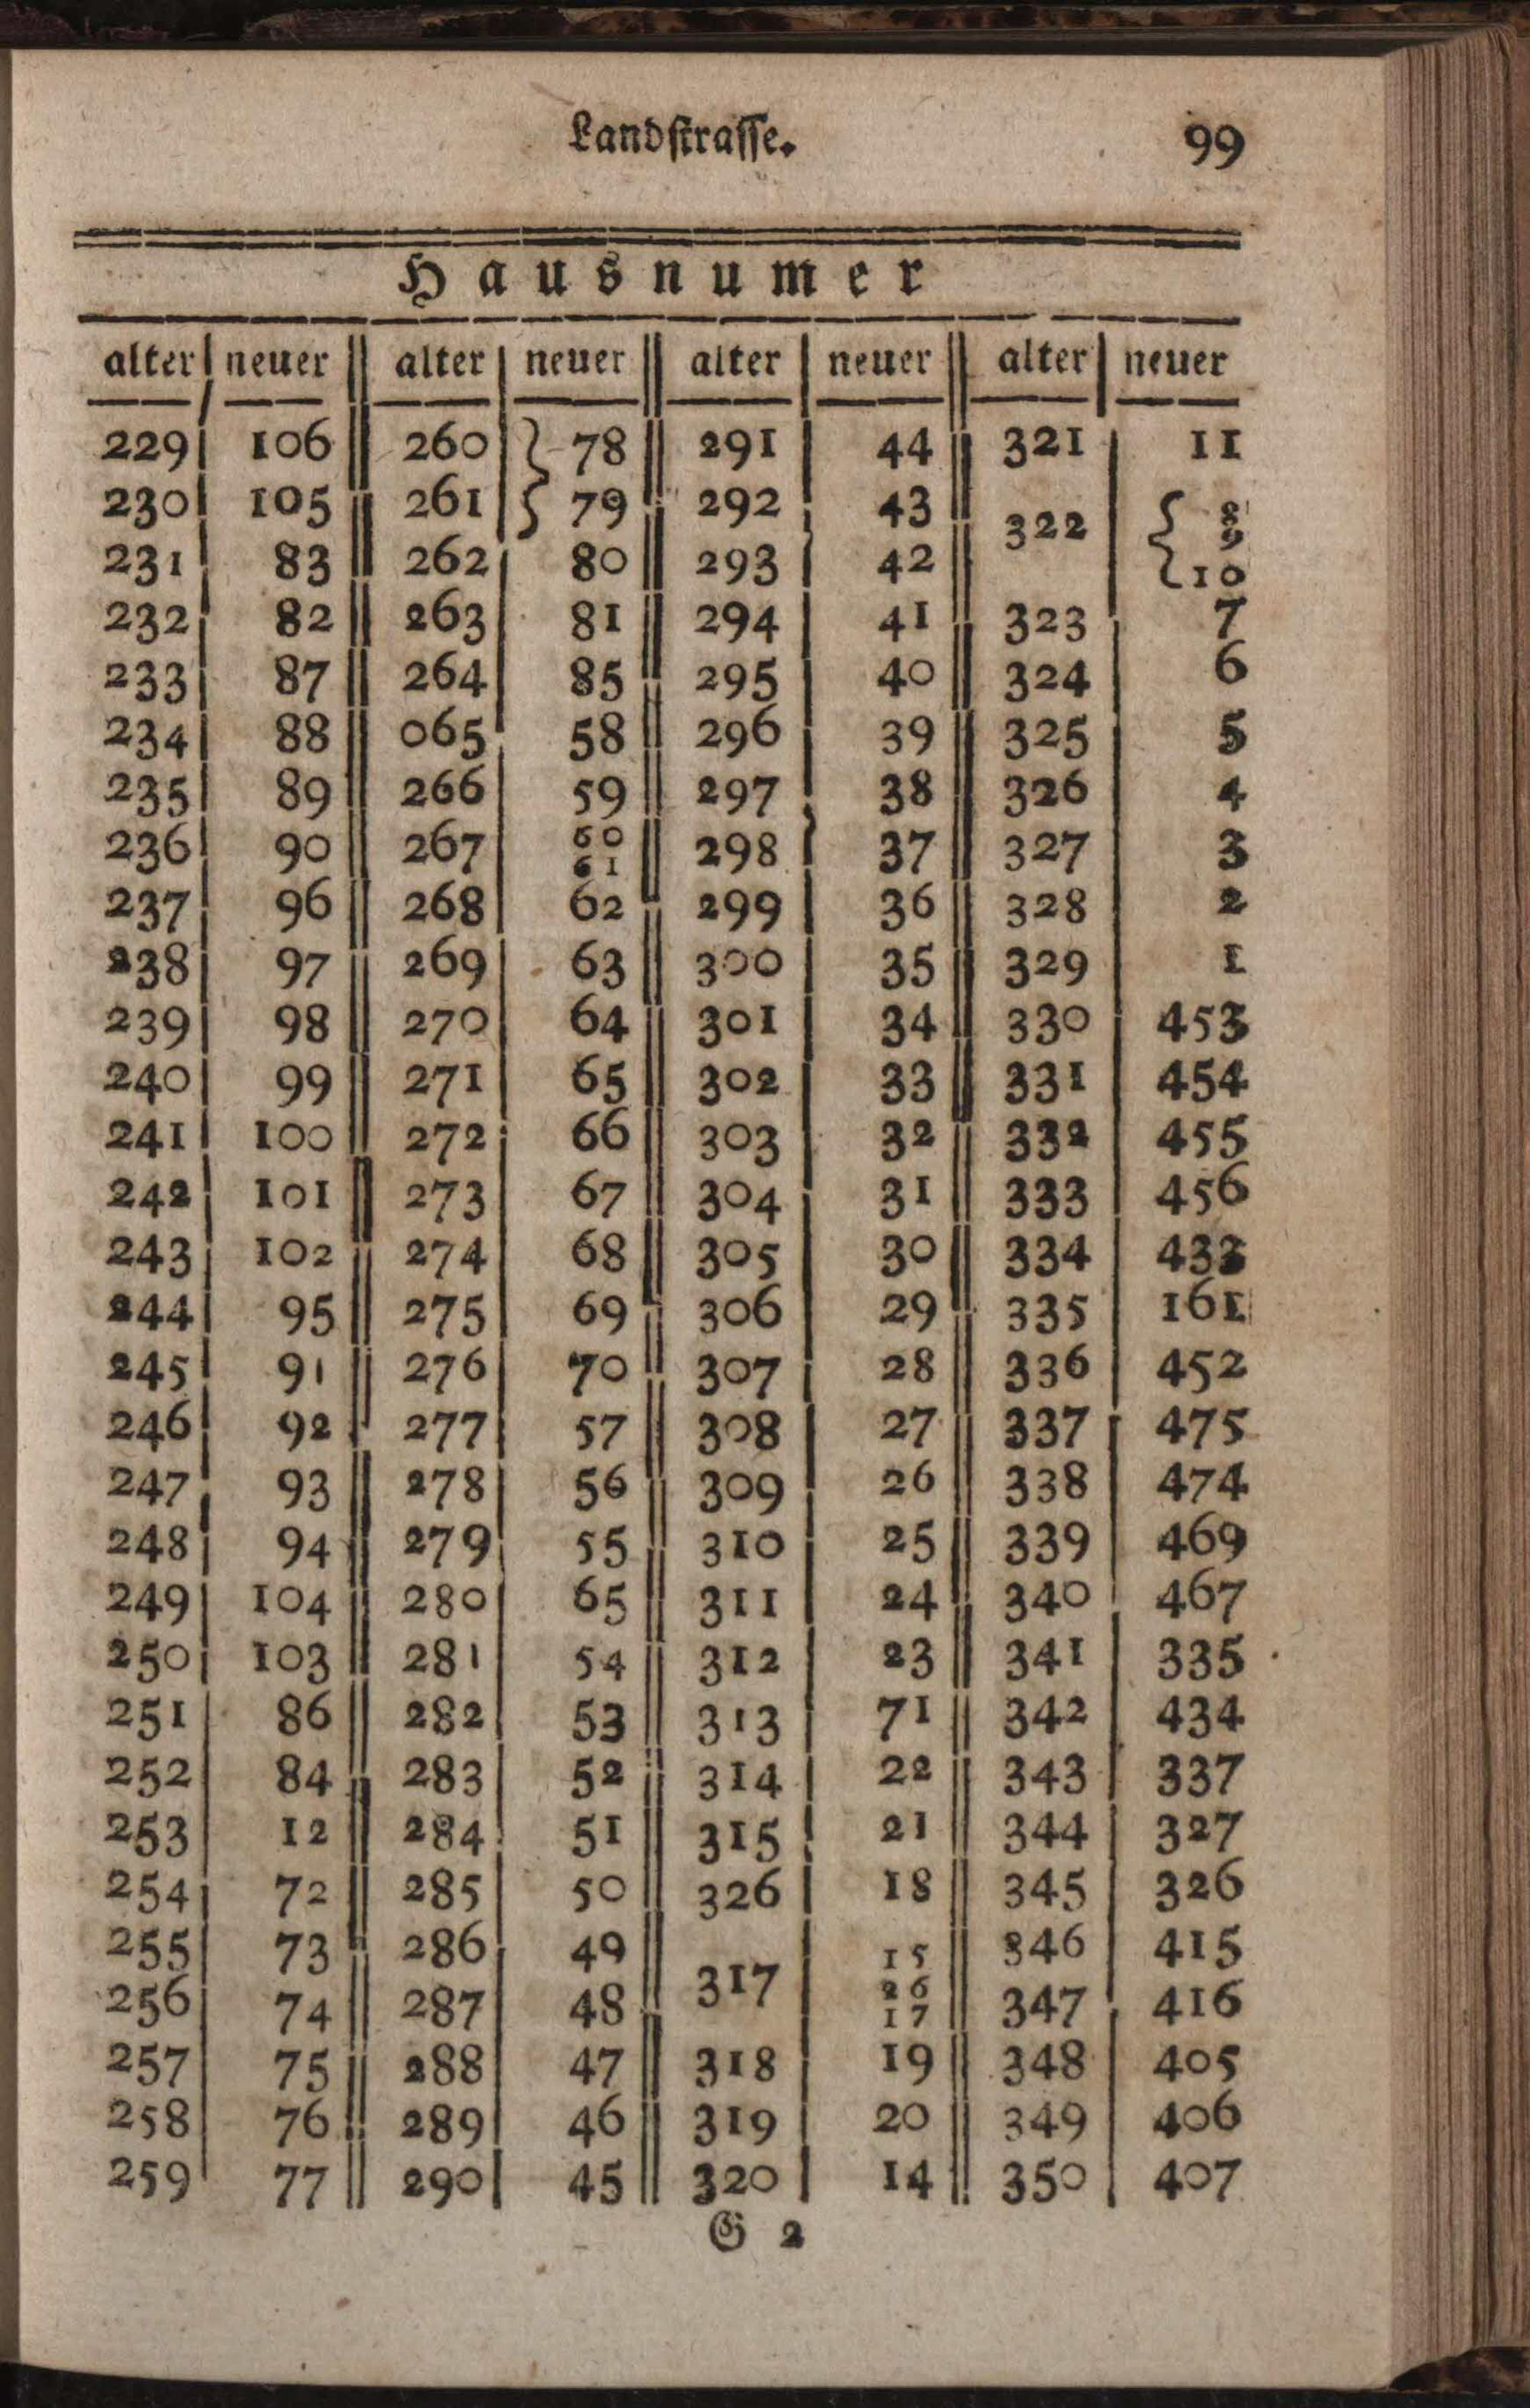 Landstrasse. 99
Hausnumer
alter neuer alter neuer alter neuer alter neuer
229 106 260 } 78 291 44 321 11
230 105 261 } 79 292 43 322 { 8
9
231 83 262 80 293 42 10
232 82 263 81 294 41 323 7
233 87 264 85 295 40 324 6
234 88 065 58 296 39 325 5
235 89 266 59 297 38 326 4
236 90 267 60
61 298 37 327 3
237 96 268 62 299 36 328 2
238 97 269 63 300 35 329 1
239 98 270 64 301 34 330 453
240 99 271 65 302 33 331 454
241 100 272 66 303 32 332 455
242 101 273 67 304 31 333 456
243 102 274 68 305 30 334 433
244 95 275 69 306 29 335 161
245 91 276 70 307 28 336 452
246 92 277 57 308 27 337 475
247 93 278 56 309 26 338 474
248 94 279 55 310 25 339 469
249 104 280 65 311 24 340 467
250 103 281 54 312 23 341 335
251 86 282 53 313 71 342 434
252 84 283 52 314 22 343 337
253 12 284 51 315 21 344 327
254 72 285 50 326 18 345 326
255 73 286 49 317 15 346 415
26
256 74 287 48 17 347 416
257 75 288 47 318 19 348 405
258 76 289 46 319 20 349 406
259 77 290 45 320 14 350 407
G 2